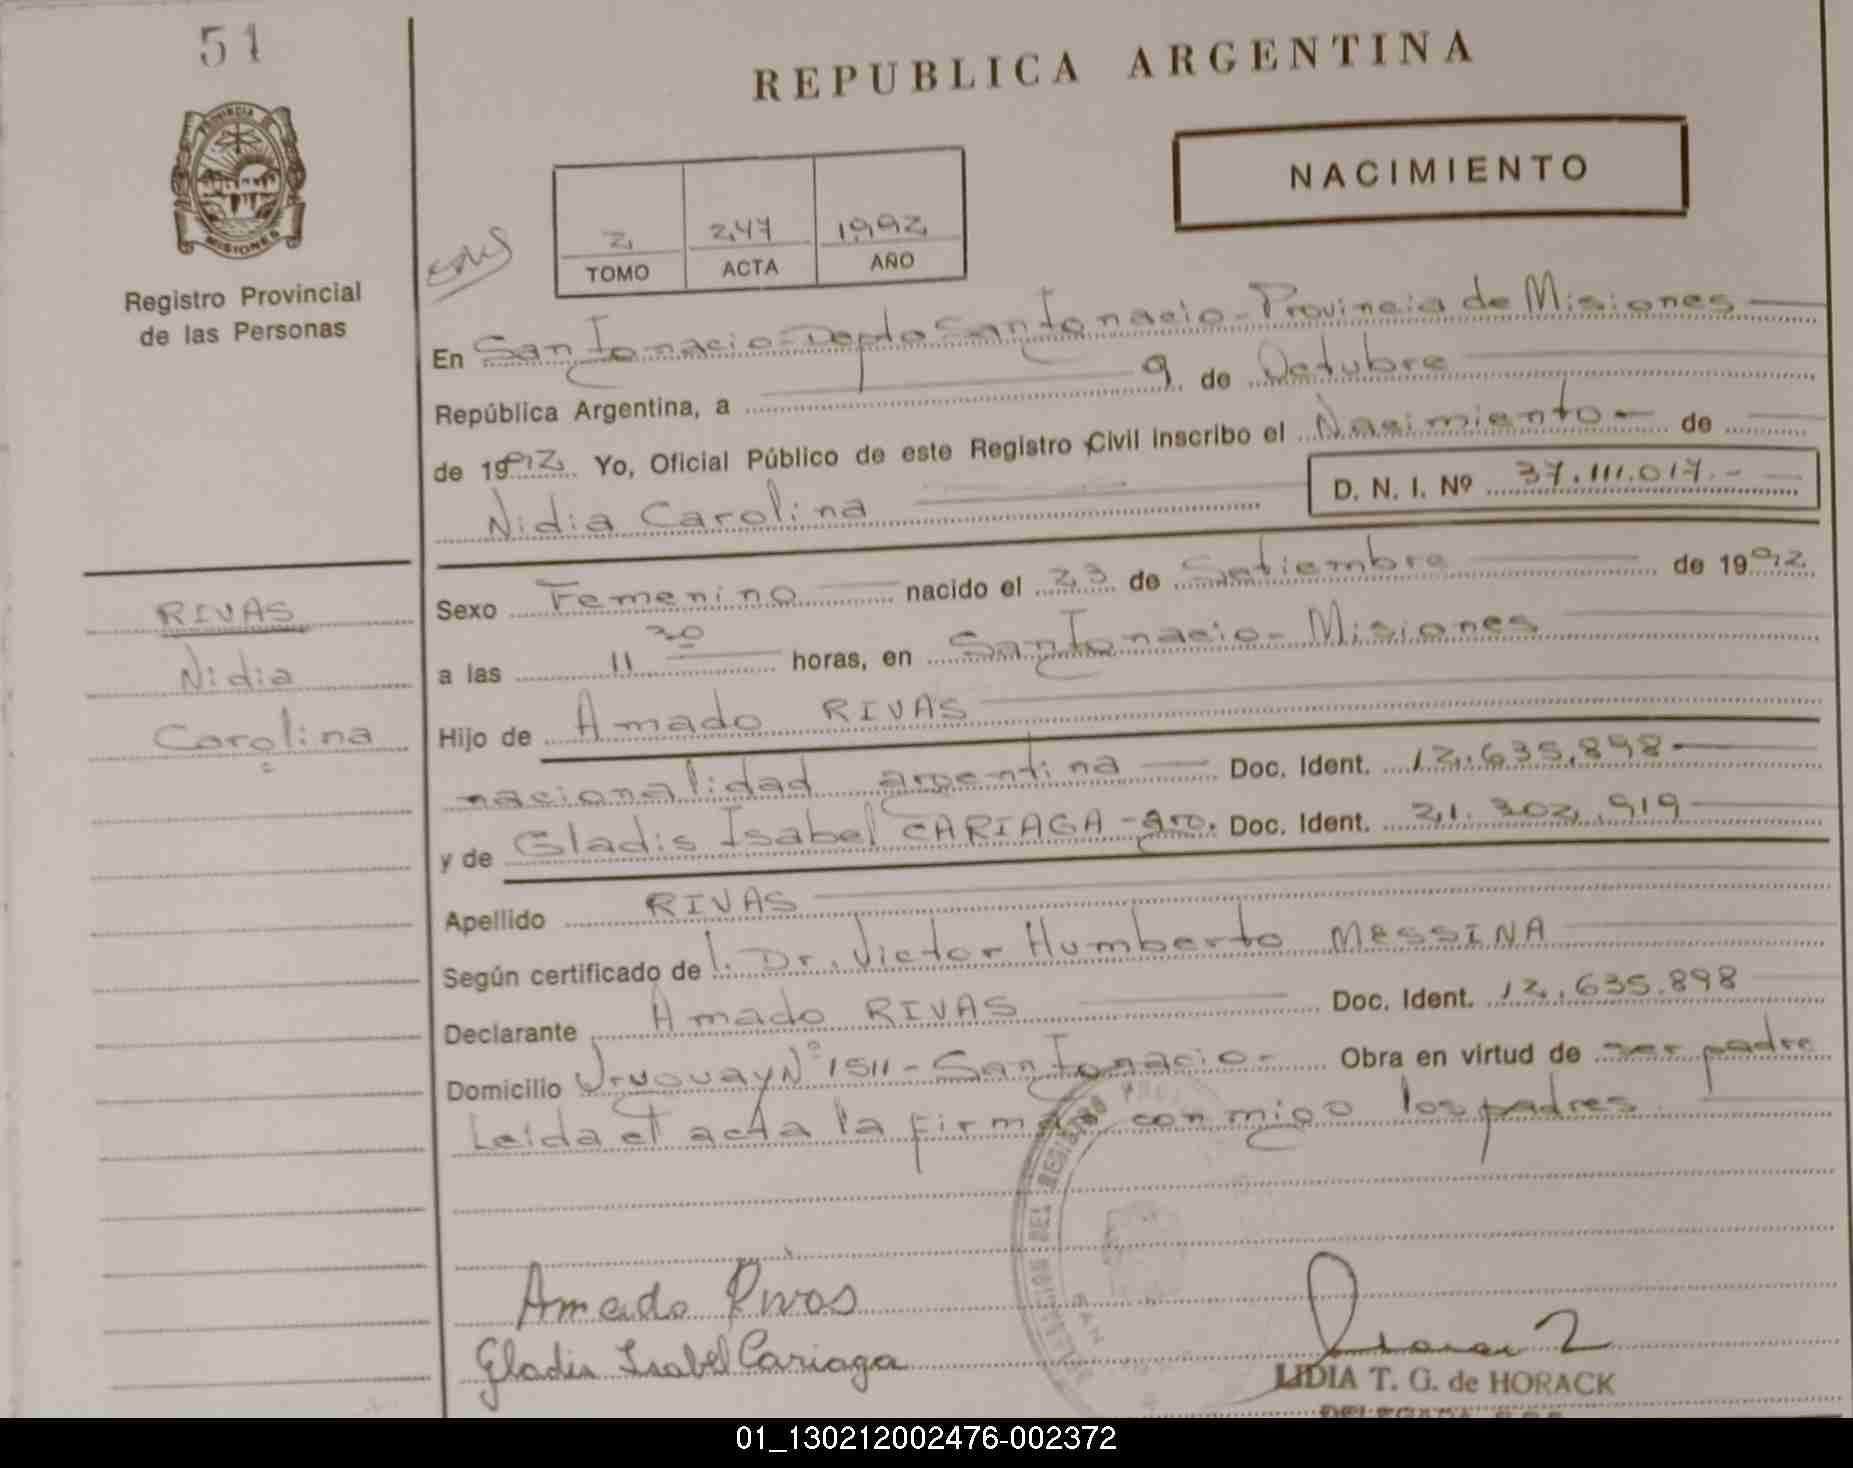 51
REPUBLICA ARGENTINA
PROVINCIA DE
MISIONES
Registro Provincial
de las Personas
NACIMIENTO
2 247 1992
TOMO ACTA AÑO
En San Ignacio - Depto San Ignacio - Provincia de Misiones
República Argentina, a 9 de Octubre
de 1992 Yo, Oficial Público de este Registro Civil inscribo el Nacimiento - de
Nidia Carolina
D. N. I. Nº 37.111.017.-
RIVAS
Nidia
Carolina
Sexo Femenino nacido el 23 de Setiembre de 1992
a las 11 30 horas, en San Ignacio - Misiones
Hijo de Amado RIVAS
nacionalidad argentina Doc. Ident. 12.635.898-
y de Gladis Isabel CARIAGA - arg. Doc. Ident. 21.302.919
Apellido RIVAS
Según certificado de l. Dr. Victor Humberto MESSINA
Declarante Amado RIVAS Doc. Ident. 12.635.898
Domicilio Uruguay Nº 1511 - San Ignacio - Obra en virtud de ser padre
Leida el acta la firman conmigo los padres
Amado Rivas
Gladis Isabel Cariaga
LIDIA T. G. de HORACK
DELEGADA
01_130212002476-002372